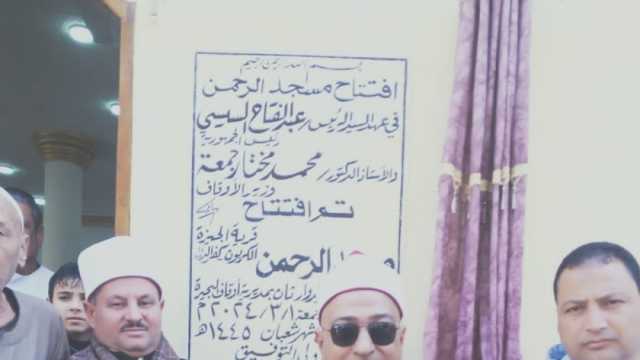 بسم الله الرحمن الرحيم
افتتاح مسجد الرحمن
في عهد السيد الرئيس/ عبد الفتاح السيسي
رئيس الجمهورية
والأستاذ الدكتور/ محمد مختار جمعة
وزير الأوقاف
تم افتتاح
قرية الجيزة
الرحمن الكريون كفر
بمديرية أوقاف البحيرة
جمعة ٢٠٢٤/٣/١ م
شهر شعبان ١٤٤٥ هـ
ولي التوفيق